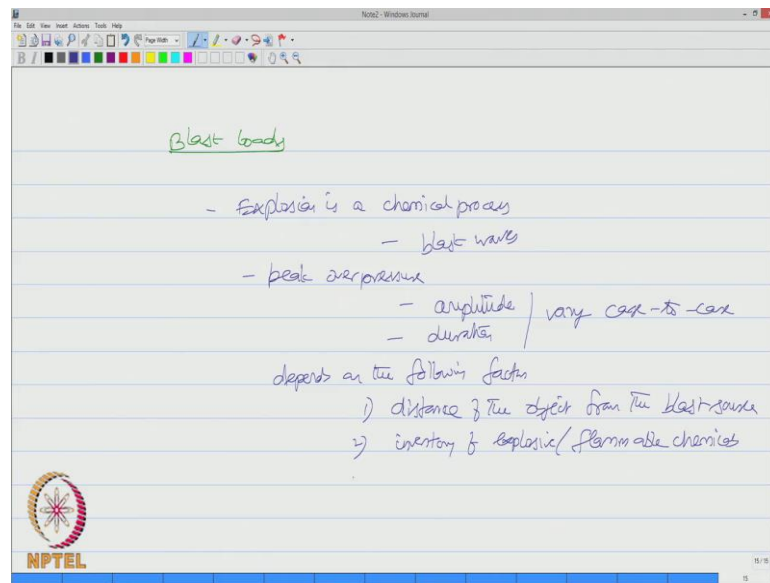 Note2 - Windows Journal
File Edit View Insert Actions Tools Help
Page Width
B I
Blast loads
- Explosion is a chemical process
- blast waves
- peak overpressure
- amplitude
- duration
vary case-to-case
depends on the following factors
1) distance of the object from the blast source
2) inventory of explosive/flammable chemicals
NPTEL
15/15
15